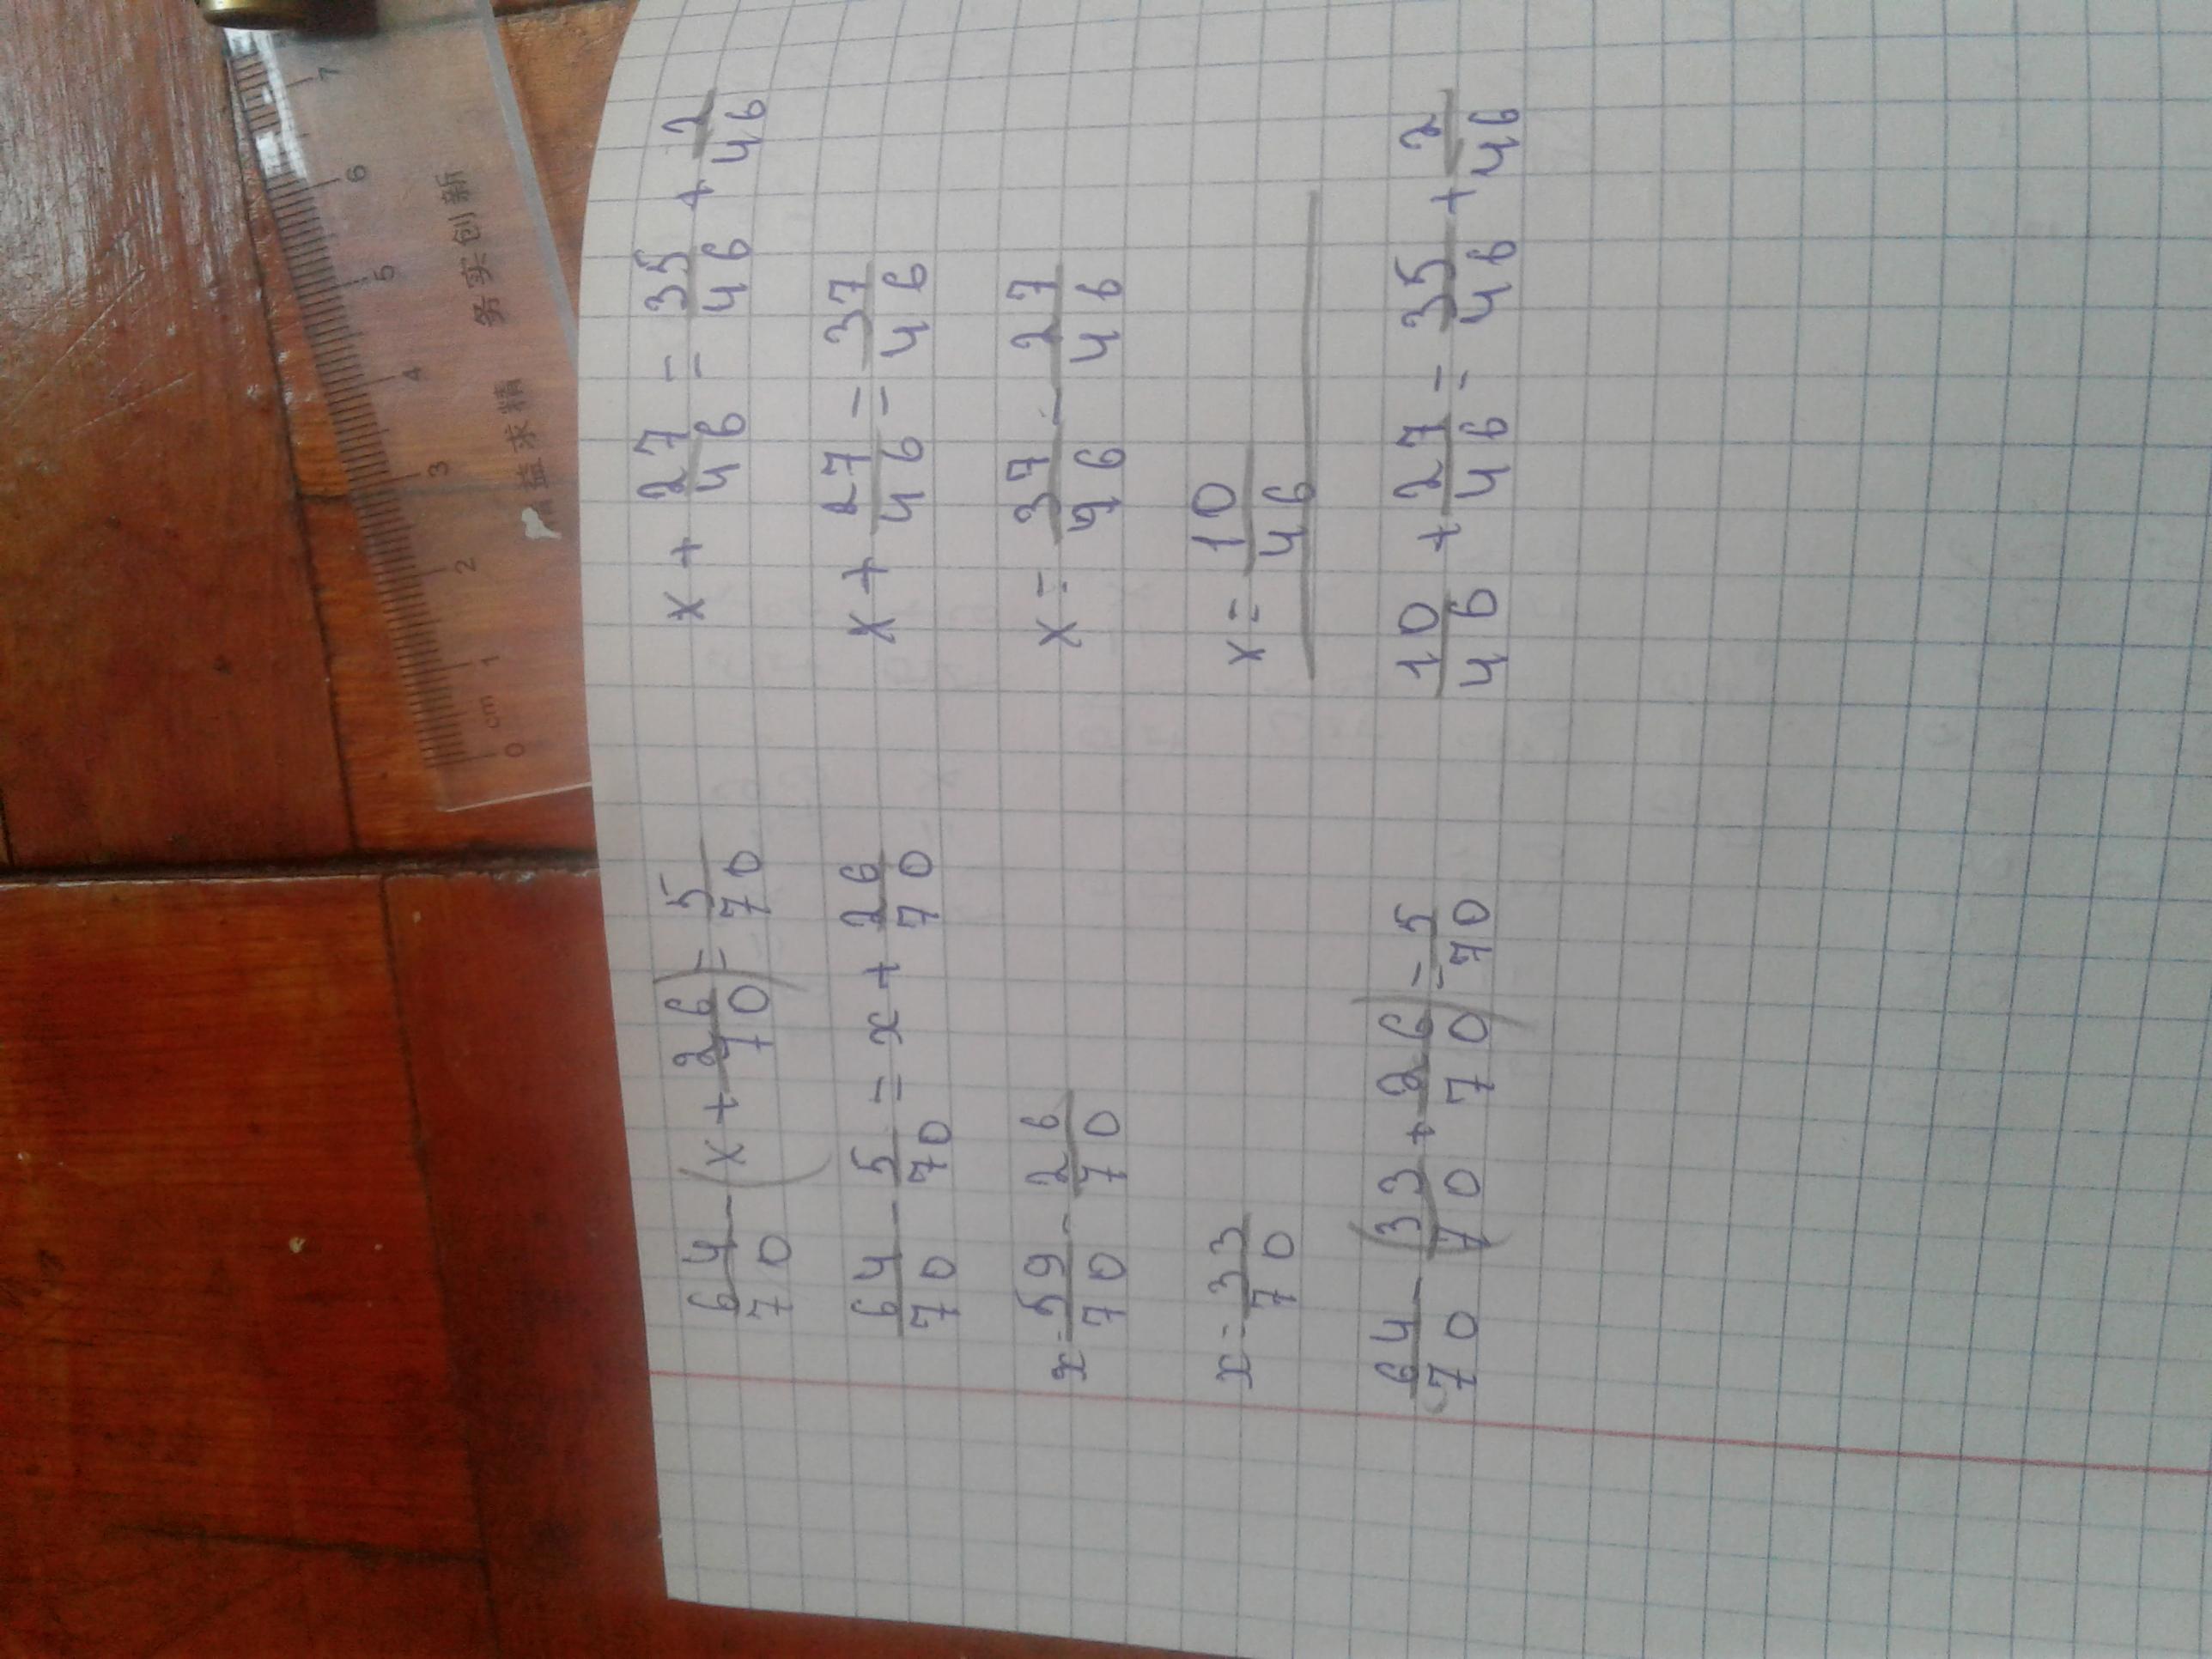 64/70 - (x + 26/70) = 5/70
64/70 - 5/70 = x + 26/70
x = 59/70 - 26/70
x = 33/70
64/70 - (33/70 + 26/70) = 5/70
x + 27/46 = 35/46 + 2/46
x + 27/46 = 37/46
x = 37/46 - 27/46
x = 10/46
10/46 + 27/46 = 35/46 + 2/46
0 cm 1 2 3 4 5 6 7
益求精 务实创新